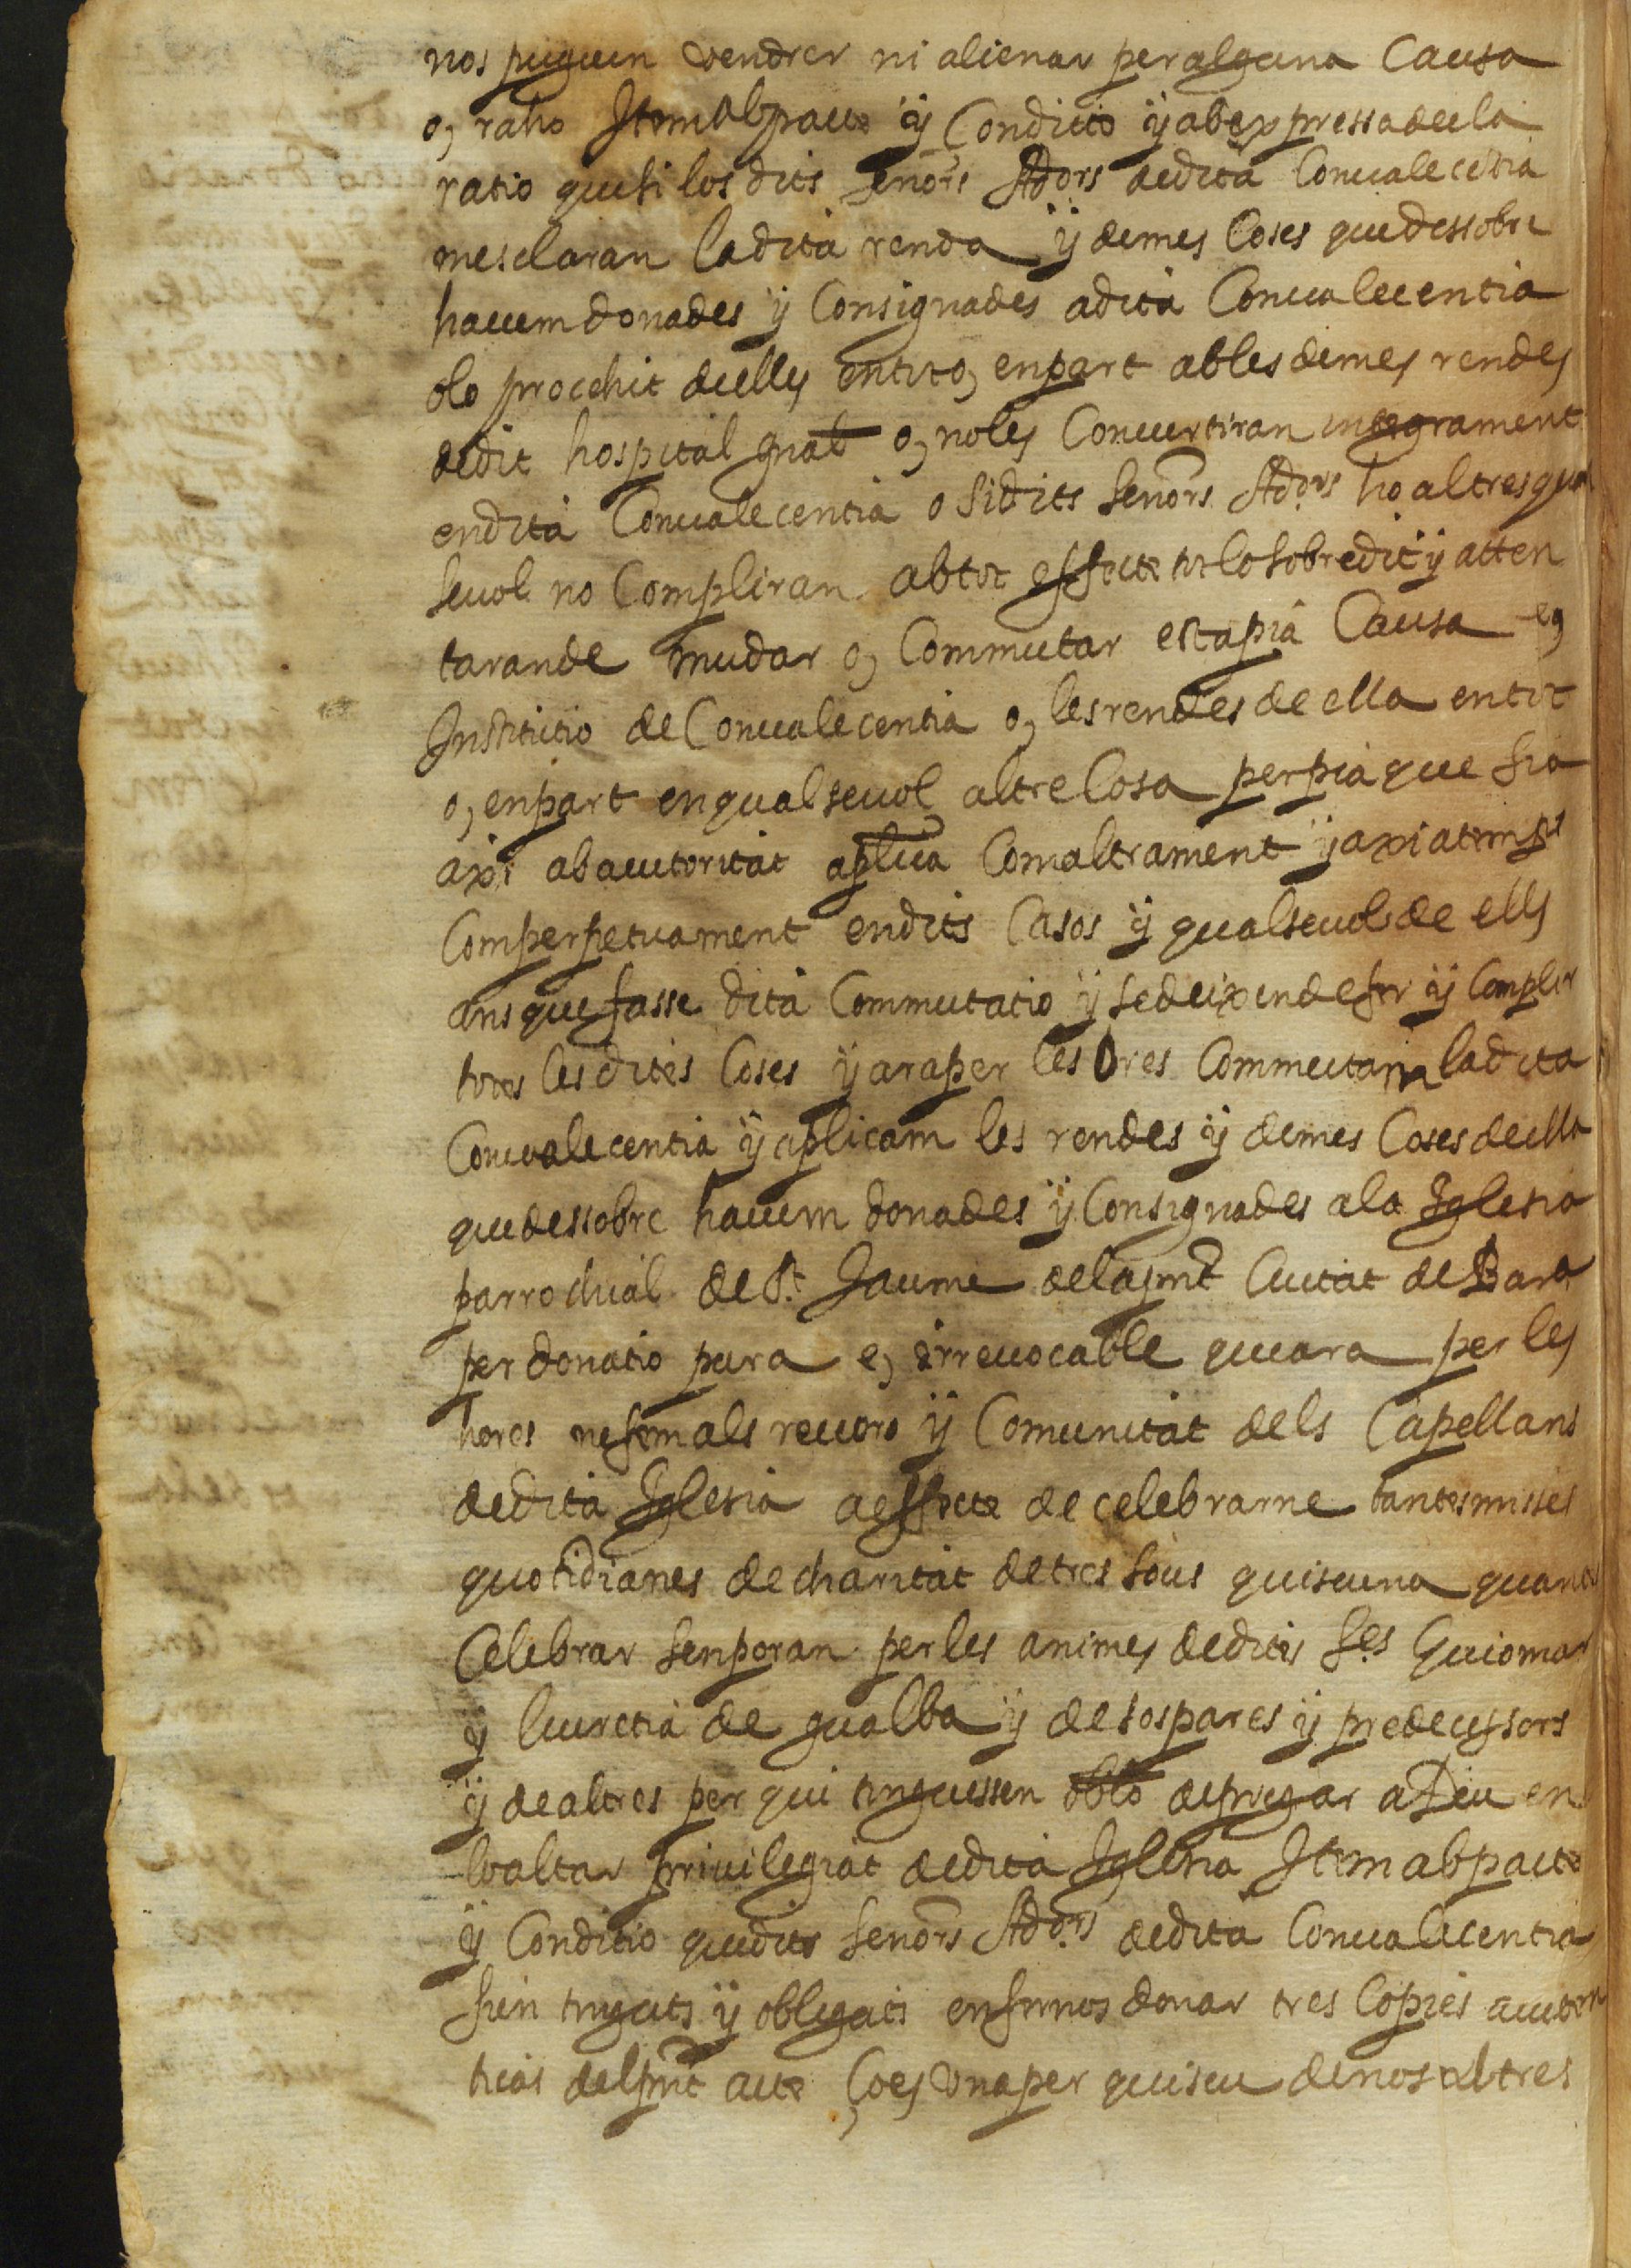 nos puguen vendrer ni alienar peralguna Causa
o, raho Item abpacte ÿ Conditio ÿ abexpressadecla
ratio que si los dits senors Adors dedita Conualecentia
mesclaran ladita renda ÿ demes Coses quedessobre
hauem donades ÿ Consignades adita Conualecentia
olo procehit de ellẏ entot o, enpart ables demes rendes
dedit hospital gnal o, noles Conuertiran integrament
endita Conualecentia o si dits senors Adors ho altres qual
seuol no Compliran abtot effecte tot lo sobredit ÿ atten
taran de mudar o, Commutar esta pia Causa e,
Institutio de Conualecentia o, les rendes de ella entot
o, enpart enqualseuol altre Cosa per pia que sia
axi abauctoritat aplica Comaltrament ÿ axi atemps
Comperpetuament endits Casos ÿ qualseuol de ells
ans que fasse dita Commutatio ÿ sedeixende fer ÿ Complir
totes les dites Coses ÿ araper les Ores Commutam ladita
Conualecentia ÿ aplicam les rendes ÿ demes Coses de ella
quedessobre hauem donades ÿ Consignades ala Iglesia
parrochial de St. Jaume delapnt Ciutat de Bara
per donatio pura e, irreuocable que ara per les
hores ne fem als rectors ÿ Comunitat dels Capellans
dedita Iglesia aeffecte de celebrarne tantes misses
quotidianes de charitat de tres sous quiscuna quantes
Celebrar senporan per les animes dedites Ses Guiomar
ÿ lucretia de gualba ÿ desospares ÿ predecessors
ÿ dealtres per qui tinguessen oblo depregar aDeu en
lo altar priuilegiat dedita Iglesia Item abpacte
ÿ Conditio quedits senors Adors dedita Conualecentia
sien tinguts ÿ obligats enfernos donar tres Copies auten
ticas delpnt acte ço es vnaper quiscu denosaltres